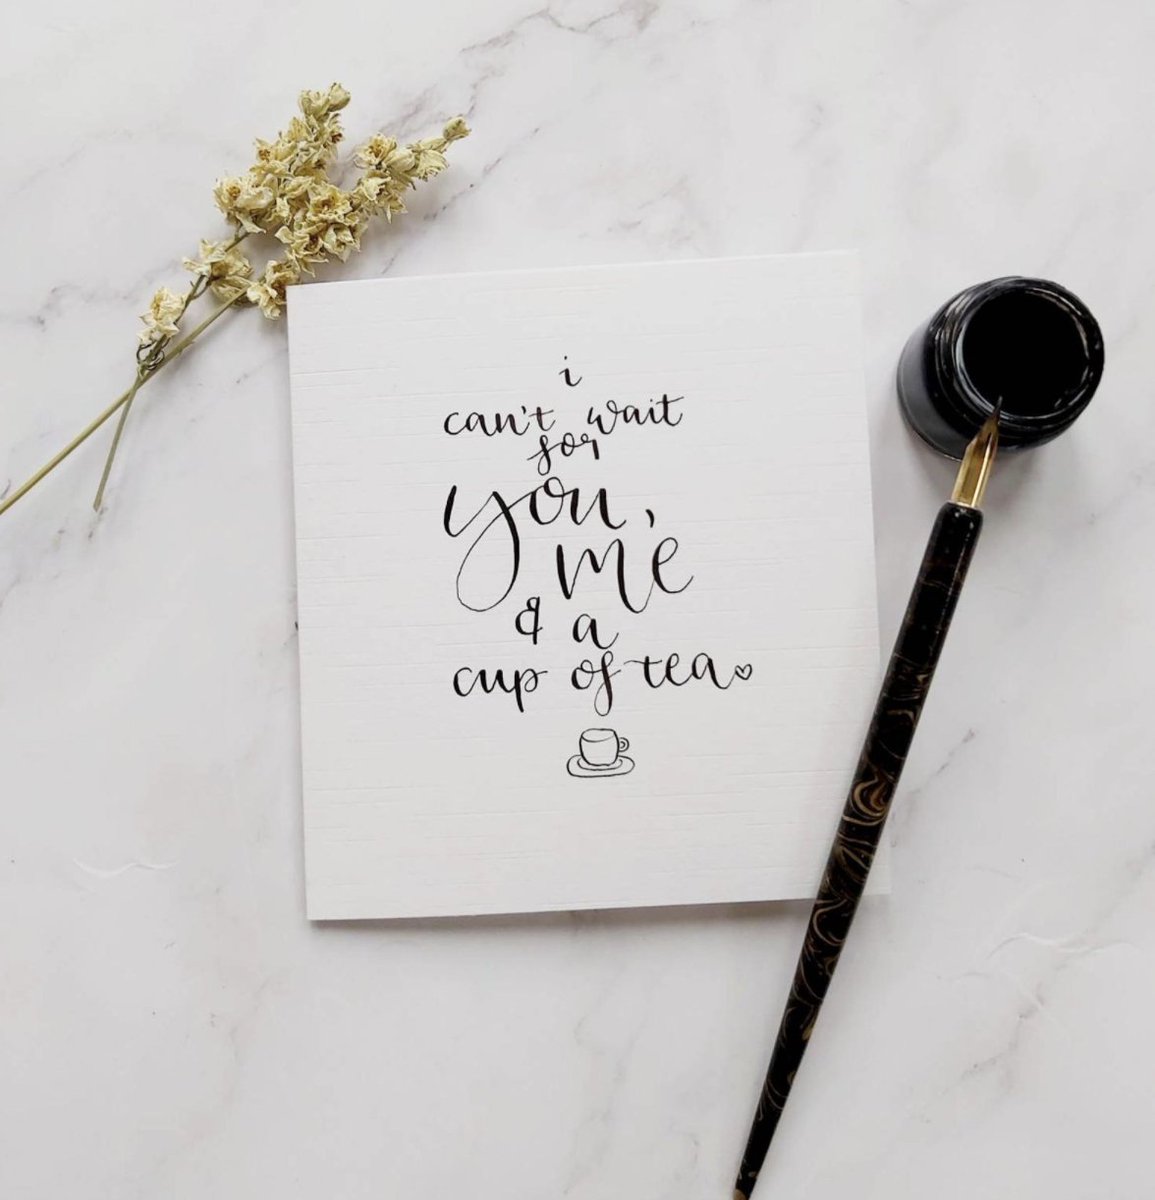 i
can't wait
for
you,
me
& a
cup of tea